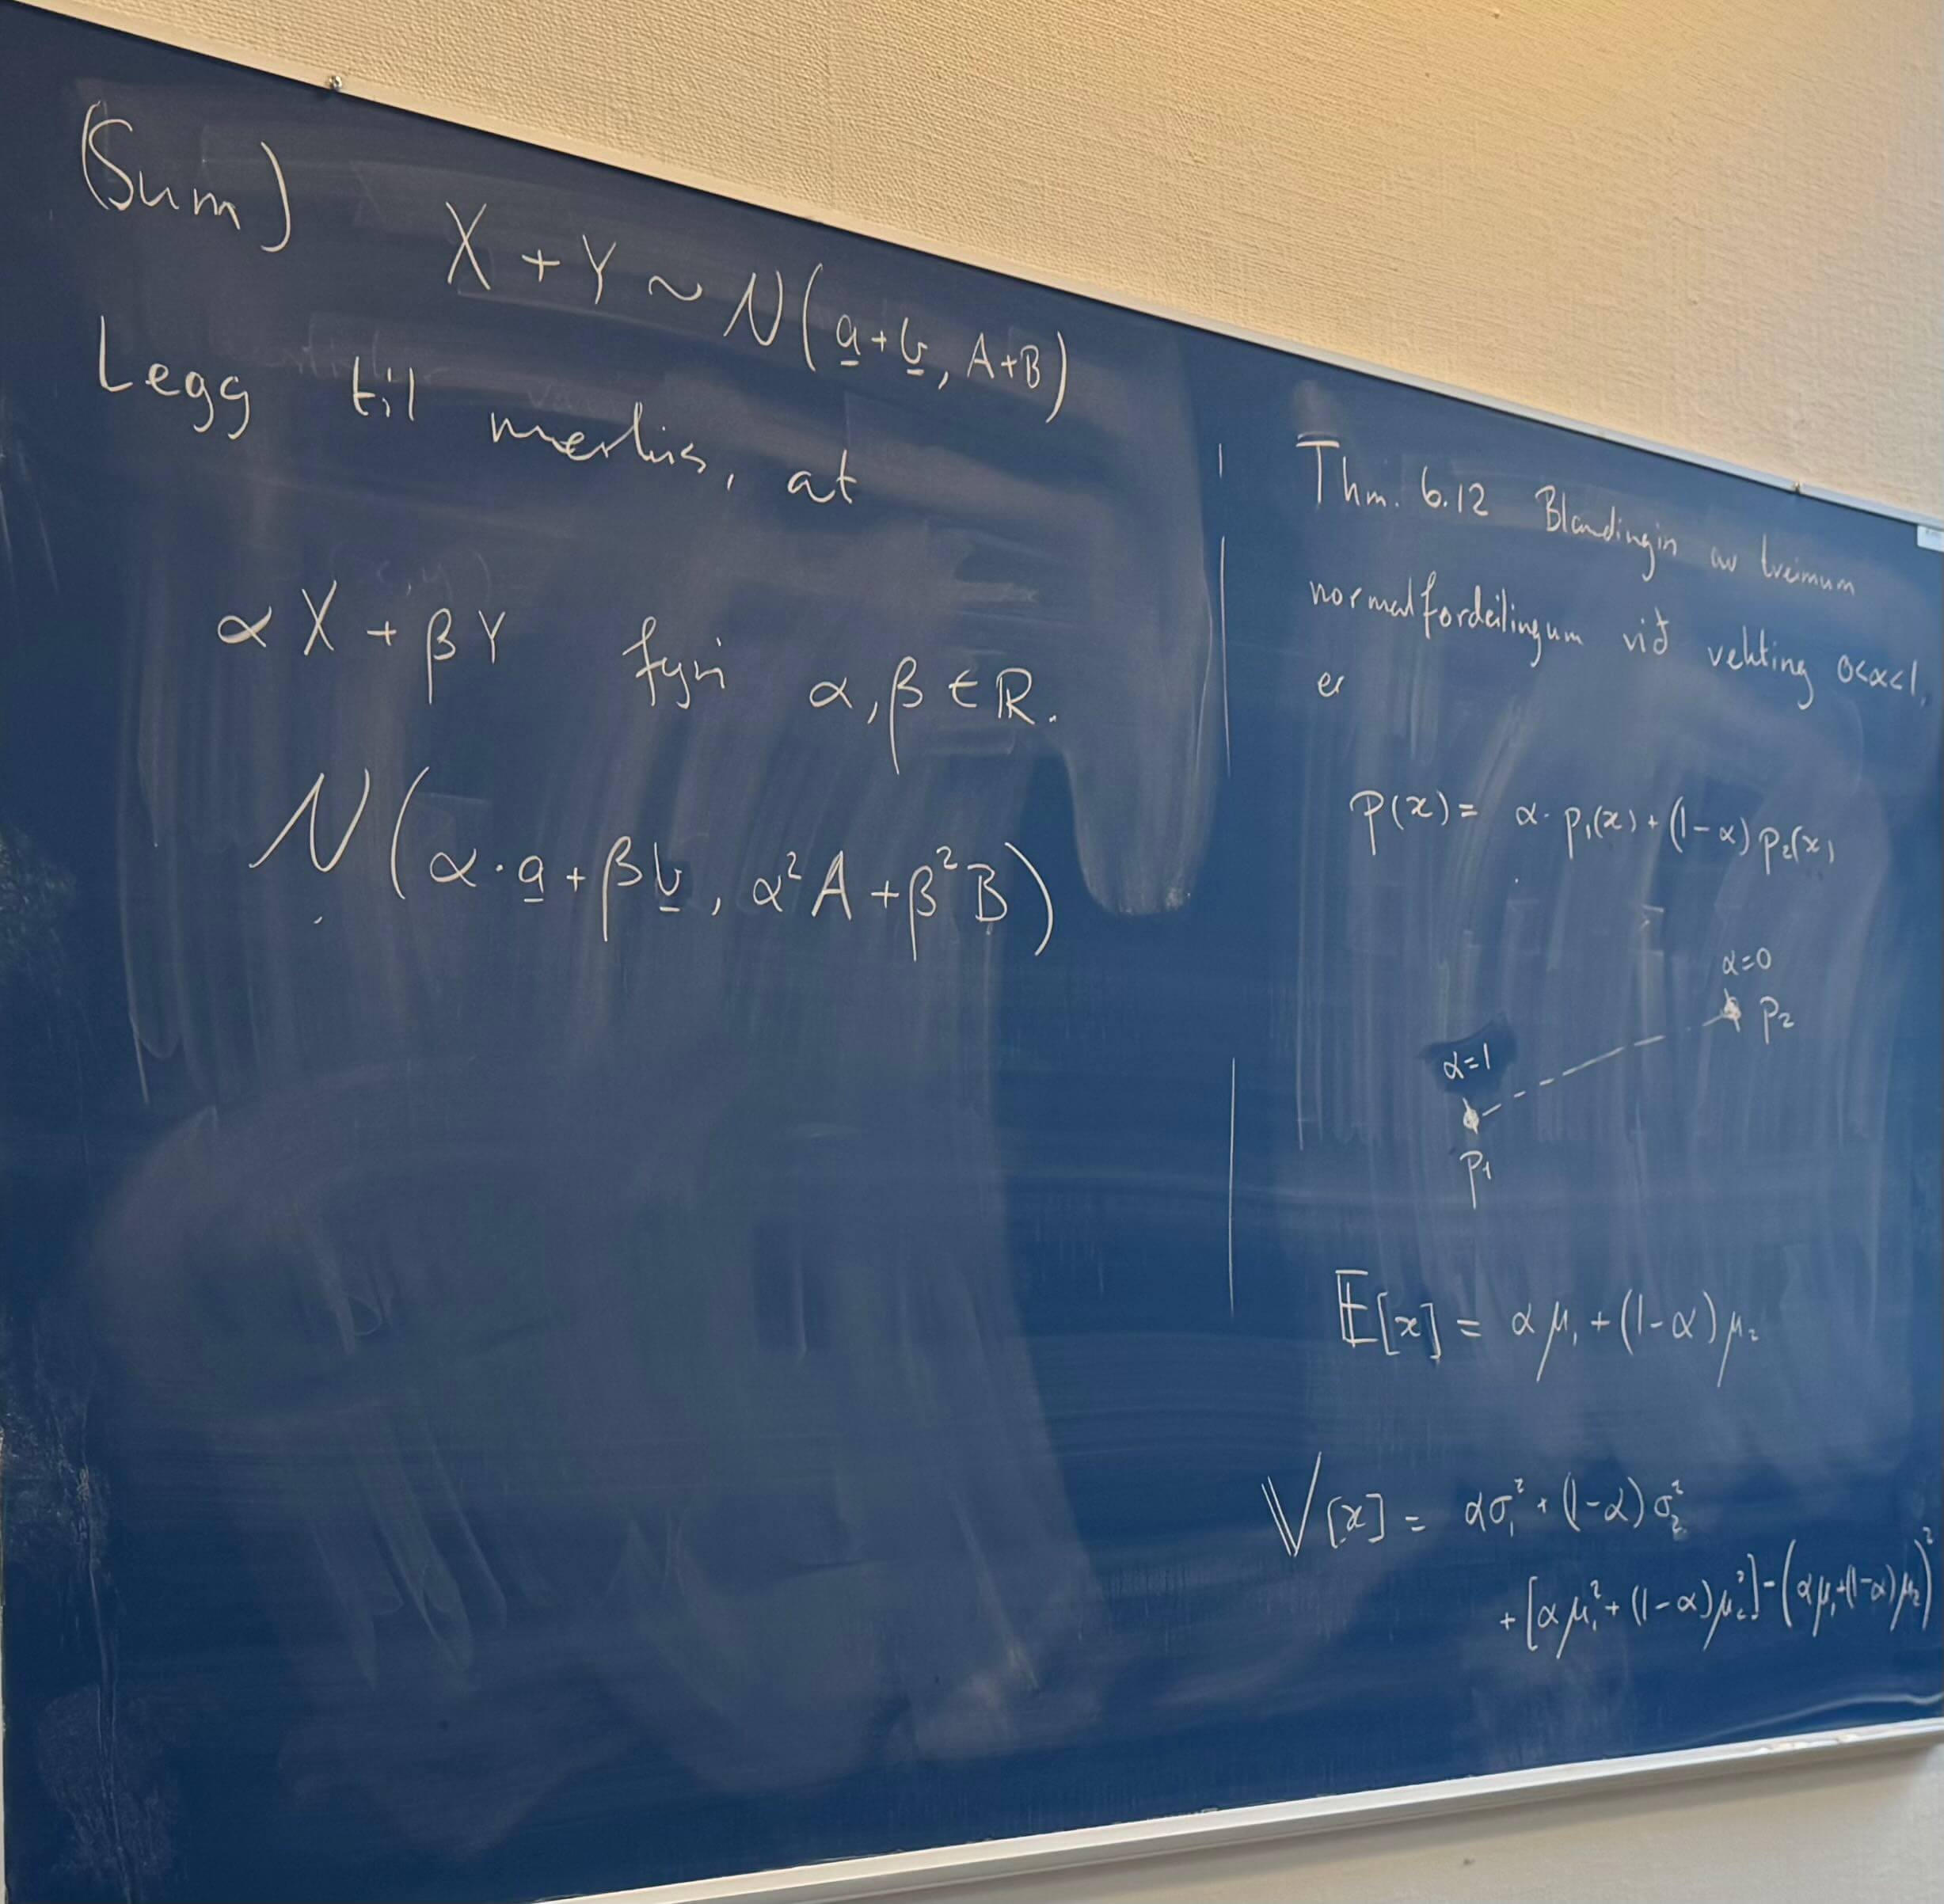 (Sum)
X + Y ~ N(a̲ + b̲, A+B)
Legg til merkis, at
αX + βY fyri α, β ∈ ℝ.
N(α·a̲ + βb̲, α²A + β²B)
Thm. 6.12 Blandingin av tveimum
normalfordeilingum við vekting 0<α<1,
er
p(x) = α·p₁(x) + (1-α)p₂(x)
α=0
p₂
α=1
p₁
𝔼[x] = αμ₁ + (1-α)μ₂
𝕍[x] = ασ₁² + (1-α)σ₂²
+ [αμ₁² + (1-α)μ₂²] - (αμ₁+(1-α)μ₂)²